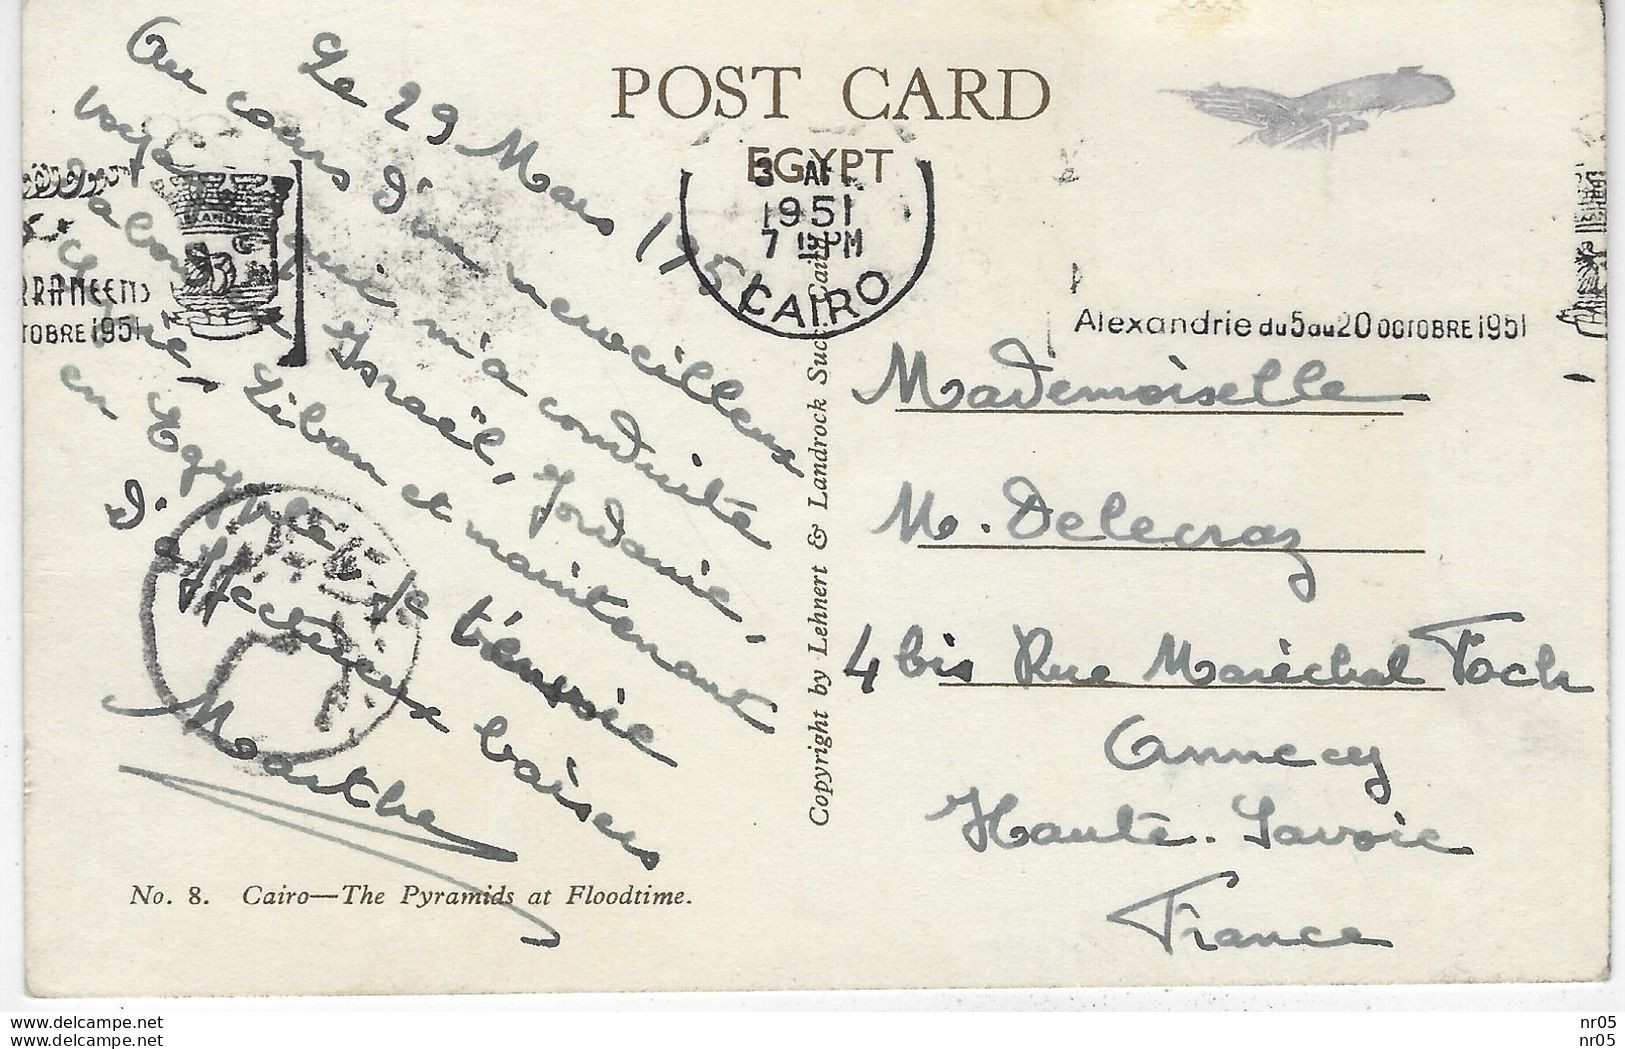 POST CARD
EGYPT
Le 29 Mars 1951
Au cours d'un merveilleux
voyage qui m'a conduite
d'abord Israël, Jordanie,
Liban et maintenant
en Egypte, je t'envoie
d'affectueux baisers
Marthe
No. 8. Cairo—The Pyramids at Floodtime.
Copyright by Lehnert & Landrock Succ. Cairo
1951
7 15 PM
CAIRO
RRANEENS
TOBRE 1951
Alexandrie du 5 au 20 OCTOBRE 1951
Mademoiselle
M. Delecraz
4 bis Rue Maréchal Foch
Annecy
Haute-Savoie
France
www.delcampe.net
www.delcampe.net
nr05
nr05